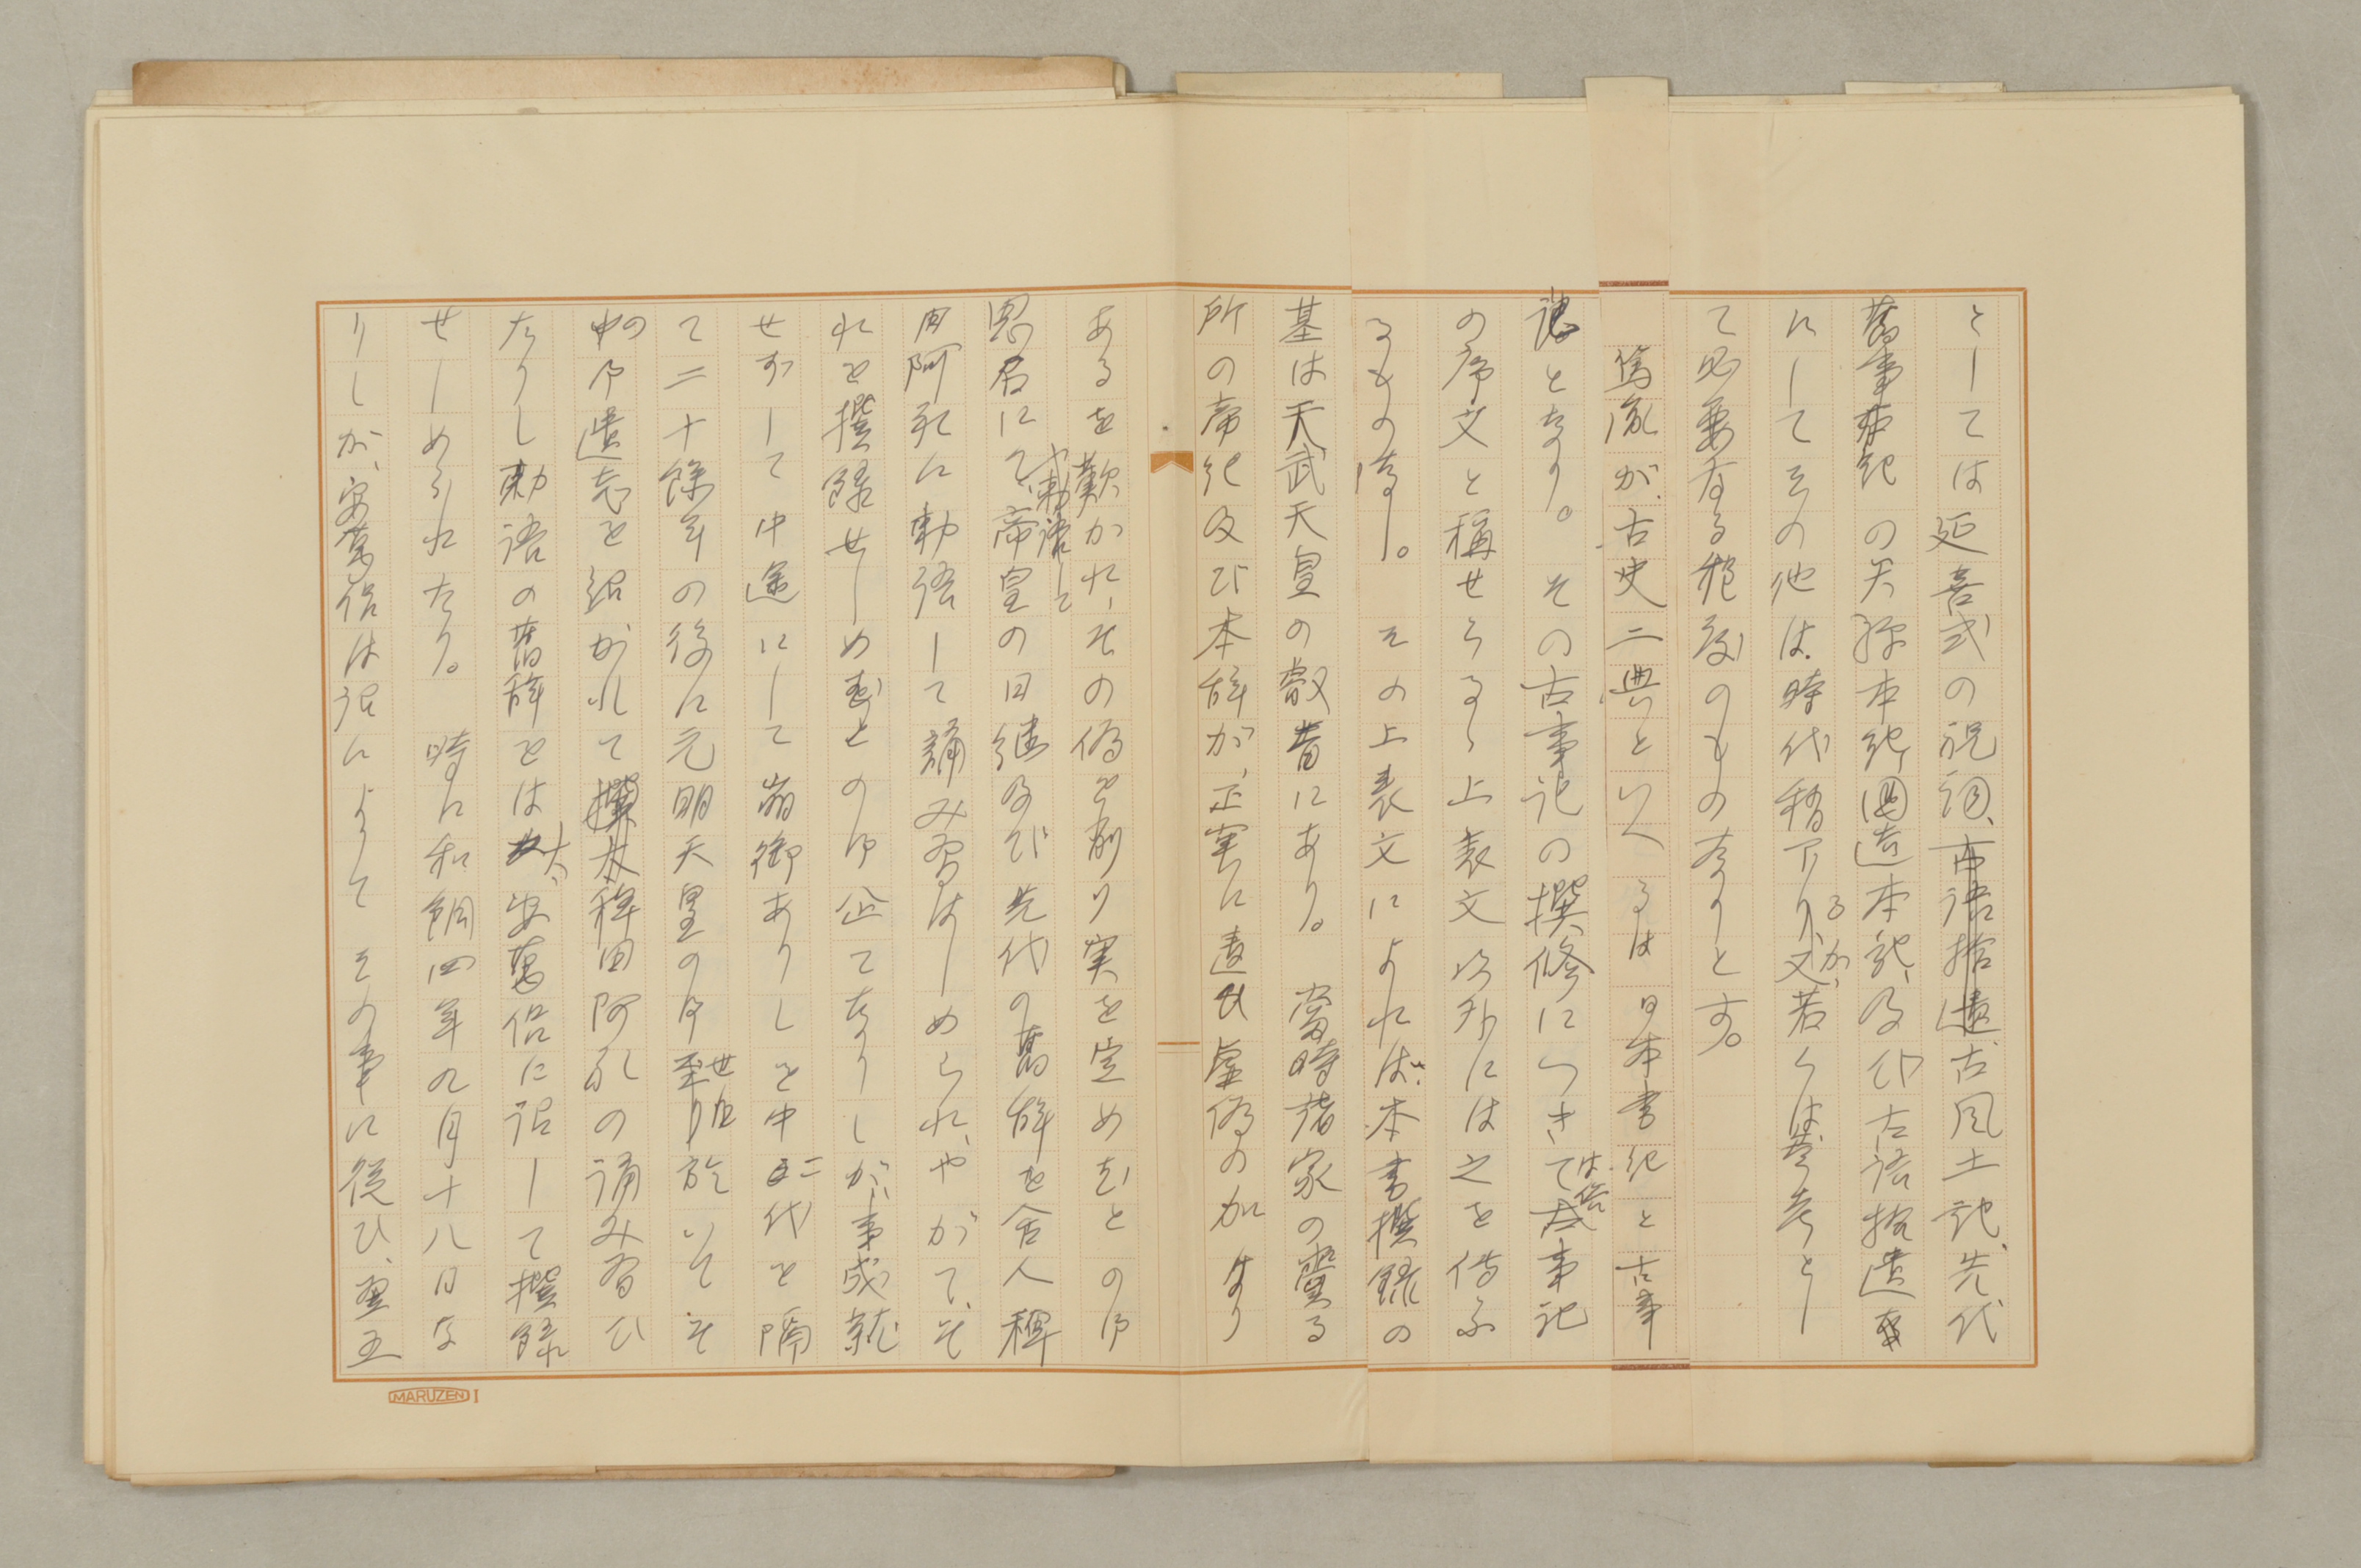 としては延喜式の祝詞、古語拾遺、古風土記、先代
舊事本紀の天孫本紀、國造本紀、及び古語拾遺
にしてその他は、時代稍下るか、若くは参考とし
て必要ある程度のものなりとす。
篤胤が、古史二典といへるは日本書紀と古事
記となり。その古事記の撰修につきては、古事記
の序文と称せらるゝ上表文以外には之を傳ふ
るもの薄し。その上表文によれば、本書撰録の
基は天武天皇の叡旨にあり。當時諸家の賷る
所の帝紀及び本辞が、正実に違ひ虚偽の加はり
あるを歎かれ、その偽を削り実を定めむとの御
思召にて、勅語して帝皇の日継及び先代の舊辞を舎人稗
田阿礼に勅語して誦み習はしめられ、やがて、そ
れを撰録せしめむとの御企てなりしが、事成就
せずして中途にして崩御ありしを中二代を隔
て二十餘年の後に元明天皇の御世に於いてそ
の御遺志を紹がれて稗田阿礼の誦み習ひ
たりし勅語の舊辞をば太安萬侶に詔して撰録
せしめられたり。時に和銅四年九月十八日な
りしが、安萬侶は詔によりてその事に従ひ、翌五
MARUZEN I